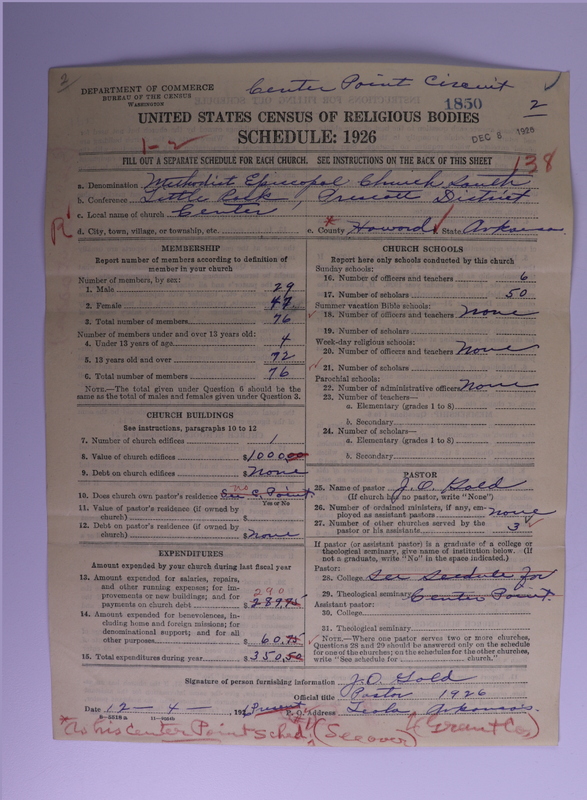 2
Center Point Circuit
DEPARTMENT OF COMMERCE
BUREAU OF THE CENSUS
WASHINGTON
1850
2
UNITED STATES CENSUS OF RELIGIOUS BODIES
DEC 8 1926
SCHEDULE: 1926
1-2
FILL OUT A SEPARATE SCHEDULE FOR EACH CHURCH. SEE INSTRUCTIONS ON THE BACK OF THIS SHEET
138
a. Denomination Methodist Episcopal Church South
b. Conference Little Rock, Prescott District
c. Local name of church Center
d. City, town, village, or township, etc.
e. County Howard State Arkansas
MEMBERSHIP
Report number of members according to definition of member in your church
Number of members, by sex:
1. Male 29
2. Female 47
3. Total number of members 76
Number of members under and over 13 years old:
4. Under 13 years of age 4
5. 13 years old and over 72
6. Total number of members 76
NOTE.—The total given under Question 6 should be the same as the total of males and females given under Question 3.
CHURCH BUILDINGS
See instructions, paragraphs 10 to 12
7. Number of church edifices 1
8. Value of church edifices $1000.00
9. Debt on church edifices $None
10. Does church own pastor's residence no
Yes or No
11. Value of pastor's residence (if owned by church) $
12. Debt on pastor's residence (if owned by church) $None
EXPENDITURES
Amount expended by your church during last fiscal year
13. Amount expended for salaries, repairs, and other running expenses; for improvements or new buildings; and for payments on church debt
290
$289.75
14. Amount expended for benevolences, including home and foreign missions; for denominational support; and for all other purposes $60.75
15. Total expenditures during year $350.50
CHURCH SCHOOLS
Report here only schools conducted by this church
Sunday schools:
16. Number of officers and teachers 6
17. Number of scholars 50
Summer vacation Bible schools:
18. Number of officers and teachers None
19. Number of scholars
Week-day religious schools:
20. Number of officers and teachers None
21. Number of scholars
Parochial schools:
22. Number of administrative officers None
23. Number of teachers—
a. Elementary (grades 1 to 8)
b. Secondary
24. Number of scholars—
a. Elementary (grades 1 to 8)
b. Secondary
PASTOR
25. Name of pastor J. O. Gold
(If church has no pastor, write "None")
26. Number of ordained ministers, if any, employed as assistant pastors None
27. Number of other churches served by the pastor or his assistants 3
If pastor (or assistant pastor) is a graduate of a college or theological seminary, give name of institution below. (If not a graduate, write "No" in the space indicated.)
Pastor:
28. College See Seedule for
29. Theological seminary Center Point
Assistant pastor:
30. College
31. Theological seminary
NOTE.—Where one pastor serves two or more churches, Questions 28 and 29 should be answered only on the schedule for one of the churches; on the schedules for the other churches, write "See schedule for church."
Signature of person furnishing information J. O. Gold
Official title Pastor 1926
Date 12-4-, 192
Present P. O. Address Arkansas.
8-5818a
* No his Center Point Sched. (See over)